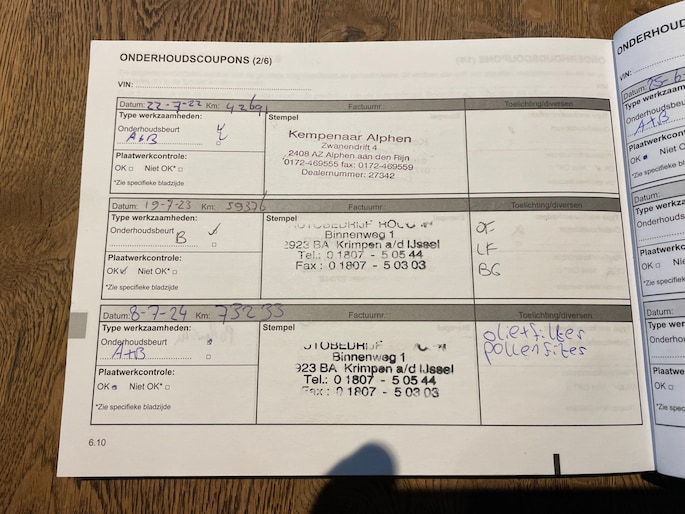 ONDERHOUDSCOUPONS (2/6)
VIN:
Datum: 22-7-22 Km: 42691 Factuurnr.: Toelichting/diversen
Type werkzaamheden:
Onderhoudsbeurt
A+B
Plaatwerkcontrole:
OK □ Niet OK* □
*Zie specifieke bladzijde
Stempel
Kempenaar Alphen
Zwanendrift 4
2408 AZ Alphen aan den Rijn
0172-469555 fax: 0172-469559
Dealernummer: 27342
Datum: 19-7-23 Km: 59376 Factuurnr.: Toelichting/diversen
Type werkzaamheden:
Onderhoudsbeurt ✓
B □
Plaatwerkcontrole:
OK ✓ Niet OK* □
*Zie specifieke bladzijde
Stempel
Binnenweg 1
2923 BA Krimpen a/d IJssel
Tel.: 0 1807 - 5 05 44
Fax : 0 1807 - 5 03 03
OF
LF
BG
Datum: 8-7-24 Km: 73233 Factuurnr.: Toelichting/diversen
Type werkzaamheden:
Onderhoudsbeurt
A+B □
Plaatwerkcontrole:
OK Niet OK* □
*Zie specifieke bladzijde
Stempel
Binnenweg 1
923 BA Krimpen a/d IJssel
Tel.: 0 1807 - 5 05 44
Fax : 0 1807 - 5 03 03
olietfilter
pollenfilter
6.10
ONDERHOUD
VIN:
Datum: 25-6-
Type werkzaamh
Onderhoudsbeu
A+B
Plaatwerkcontro
OK Niet O
*Zie specifieke b
Datum:
Type werkz
Onderhouds
Plaatwerk
OK □
*Zie speci
Datum:
Type wer
Onderhou
Plaatw
OK □
*Zie s